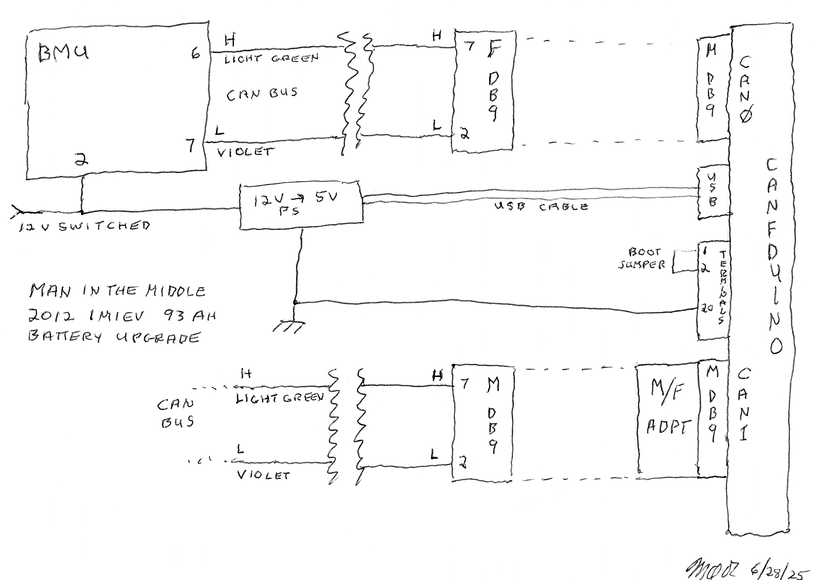 BMU
6
H
LIGHT GREEN
CAN BUS
L
7
VIOLET
2
H
7
F
DB9
L
2
M
DB9
CANØ
12V SWITCHED
12V → 5V
PS
USB CABLE
USB
CANFDUINO
BOOT
JUMPER
1
2
20
TERMINALS
MAN IN THE MIDDLE
2012 IMIEV 93 AH
BATTERY UPGRADE
CAN
BUS
H
LIGHT GREEN
L
VIOLET
H
7
M
DB9
L
2
M/F
ADPT
M
DB9
CAN1
6/28/25